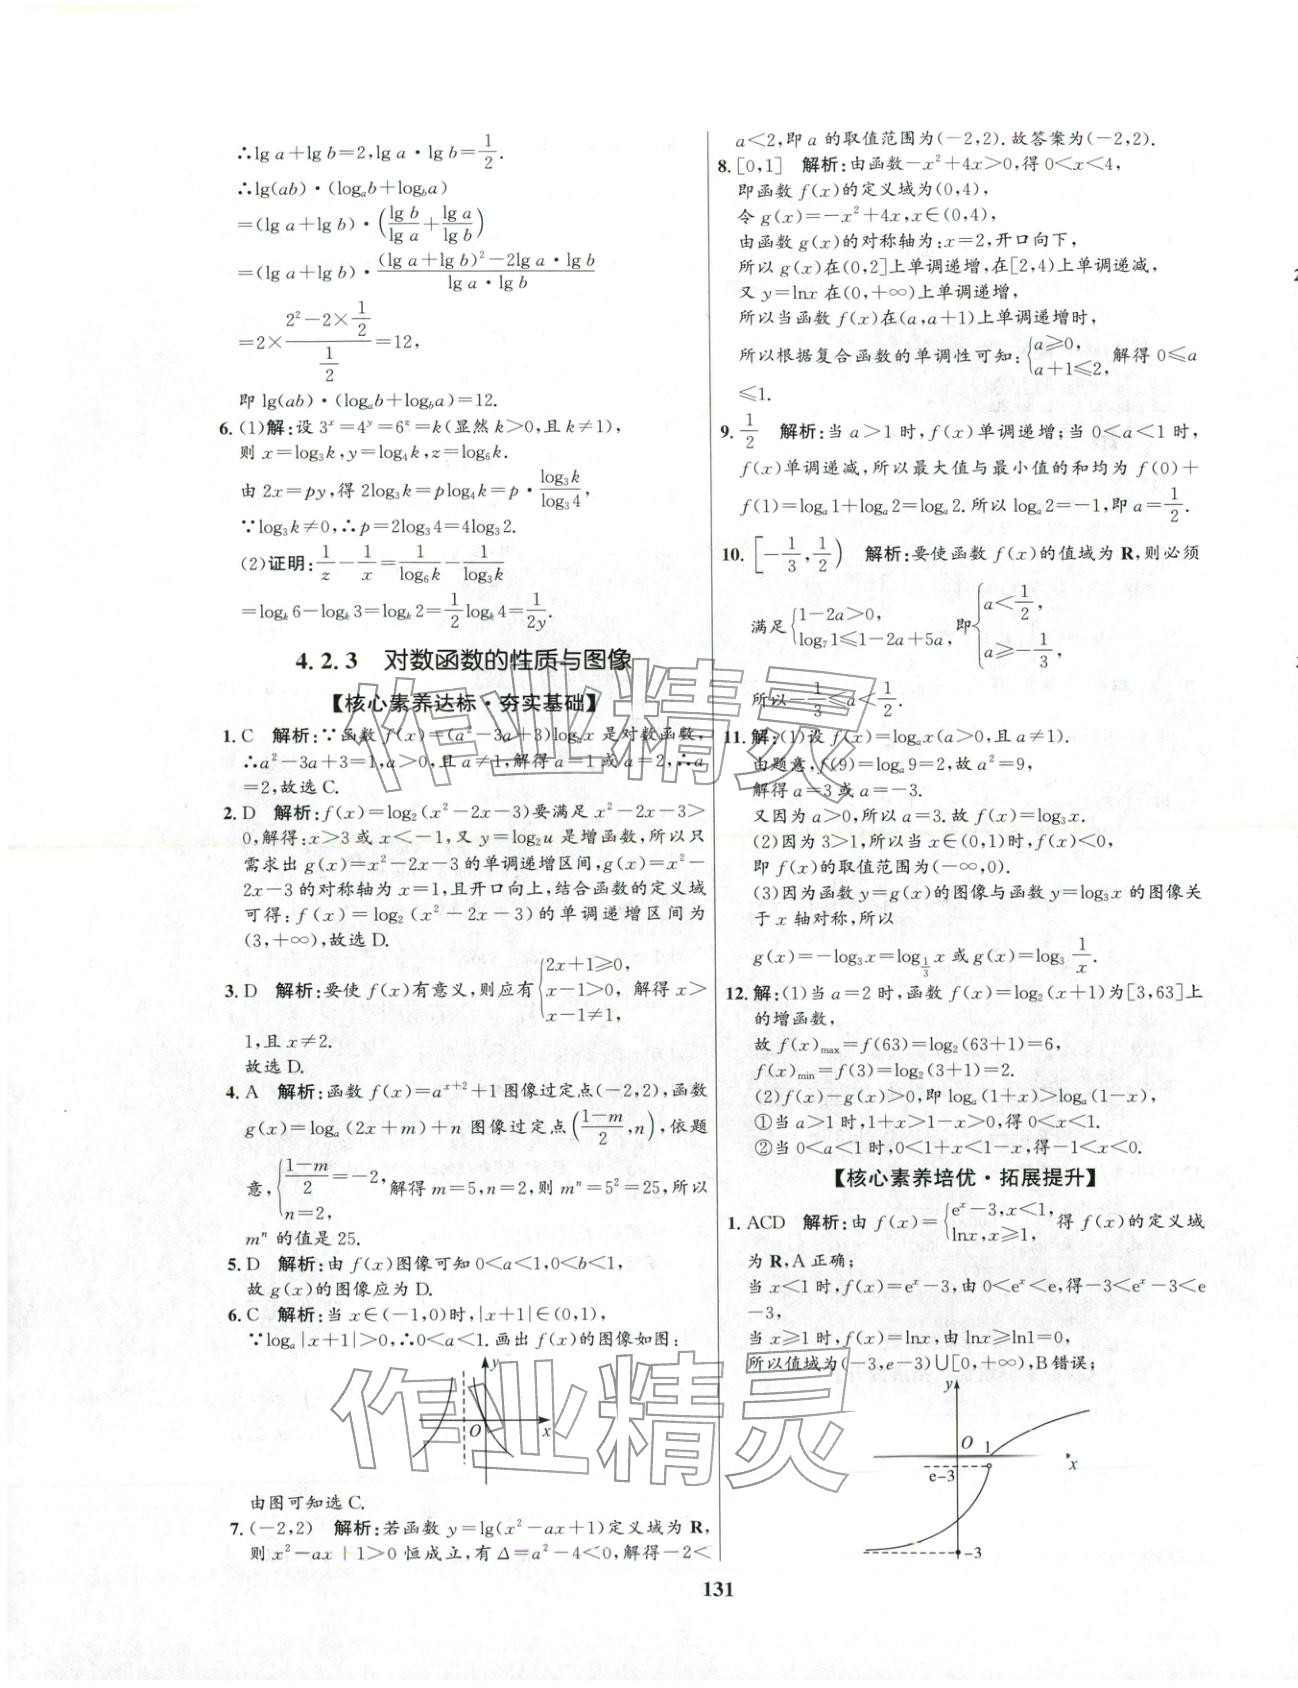 ∴lg a+lg b=2,lg a·lg b=1/2.
∴lg(ab)·(logₐb+log_b a)
=(lg a+lg b)·(lg b/lg a+lg a/lg b)
=(lg a+lg b)·((lg a+lg b)²-2lg a·lg b)/(lg a·lg b)
=2×(2²-2×1/2)/(1/2)=12,
即 lg(ab)·(logₐb+log_b a)=12.
6. (1)解:设 3ˣ=4ʸ=6ᶻ=k(显然 k>0,且 k≠1),
则 x=log₃k,y=log₄k,z=log₆k.
由 2x=py,得 2log₃k=plog₄k=p·log₃k/log₃4,
∵log₃k≠0,∴p=2log₃4=4log₃2.
(2)证明:1/z-1/x=1/log₆k-1/log₃k
=log_k 6-log_k 3=log_k 2=1/2 log_k 4=1/(2y).
4.2.3 对数函数的性质与图像
【核心素养达标·夯实基础】
1. C 解析:∵函数 f(x)=(a²-3a+3)logₐx 是对数函数,
∴a²-3a+3=1,a>0,且 a≠1,解得 a=1 或 a=2,∴a
=2,故选 C.
2. D 解析:f(x)=log₂(x²-2x-3)要满足 x²-2x-3>
0,解得:x>3 或 x<-1,又 y=log₂u 是增函数,所以只
需求出 g(x)=x²-2x-3 的单调递增区间,g(x)=x²-
2x-3 的对称轴为 x=1,且开口向上,结合函数的定义域
可得:f(x)=log₂(x²-2x-3)的单调递增区间为
(3,+∞),故选 D.
3. D 解析:要使 f(x)有意义,则应有{2x+1≥0, x-1>0, x-1≠1, 解得 x>
1,且 x≠2.
故选 D.
4. A 解析:函数 f(x)=aˣ⁺²+1 图像过定点(-2,2),函数
g(x)=logₐ(2x+m)+n 图像过定点((1-m)/2,n),依题
意,{(1-m)/2=-2, n=2, 解得 m=5,n=2,则 mⁿ=5²=25,所以
mⁿ 的值是 25.
5. D 解析:由 f(x)图像可知 0<a<1,0<b<1,
故 g(x)的图像应为 D.
6. C 解析:当 x∈(-1,0)时,|x+1|∈(0,1),
∵logₐ|x+1|>0,∴0<a<1.画出 f(x)的图像如图:
y
O
x
由图可知选 C.
7. (-2,2) 解析:若函数 y=lg(x²-ax+1)定义域为 R,
则 x²-ax+1>0 恒成立,有 Δ=a²-4<0,解得-2<
a<2,即 a 的取值范围为(-2,2).故答案为(-2,2).
8. [0,1] 解析:由函数-x²+4x>0,得 0<x<4,
即函数 f(x)的定义域为(0,4),
令 g(x)=-x²+4x,x∈(0,4),
由函数 g(x)的对称轴为:x=2,开口向下,
所以 g(x)在(0,2]上单调递增,在[2,4)上单调递减,
又 y=lnx 在(0,+∞)上单调递增,
所以当函数 f(x)在(a,a+1)上单调递增时,
所以根据复合函数的单调性可知:{a≥0, a+1≤2, 解得 0≤a
≤1.
9. 1/2 解析:当 a>1 时,f(x)单调递增;当 0<a<1 时,
f(x)单调递减,所以最大值与最小值的和均为 f(0)+
f(1)=logₐ1+logₐ2=logₐ2.所以 logₐ2=-1,即 a=1/2.
10. [-1/3,1/2) 解析:要使函数 f(x)的值域为 R,则必须
满足{1-2a>0, log₇1≤1-2a+5a, 即{a<1/2, a≥-1/3,
所以-1/3≤a<1/2.
11. 解:(1)设 f(x)=logₐx(a>0,且 a≠1).
由题意,f(9)=logₐ9=2,故 a²=9,
解得 a=3 或 a=-3.
又因为 a>0,所以 a=3.故 f(x)=log₃x.
(2)因为 3>1,所以当 x∈(0,1)时,f(x)<0,
即 f(x)的取值范围为(-∞,0).
(3)因为函数 y=g(x)的图像与函数 y=log₃x 的图像关
于 x 轴对称,所以
g(x)=-log₃x=log_{1/3} x 或 g(x)=log₃ 1/x.
12. 解:(1)当 a=2 时,函数 f(x)=log₂(x+1)为[3,63]上
的增函数,
故 f(x)max=f(63)=log₂(63+1)=6,
f(x)min=f(3)=log₂(3+1)=2.
(2)f(x)-g(x)>0,即 logₐ(1+x)>logₐ(1-x),
①当 a>1 时,1+x>1-x>0,得 0<x<1.
②当 0<a<1 时,0<1+x<1-x,得-1<x<0.
【核心素养培优·拓展提升】
1. ACD 解析:由 f(x)={eˣ-3,x<1, lnx,x≥1, 得 f(x)的定义域
为 R,A 正确;
当 x<1 时,f(x)=eˣ-3,由 0<eˣ<e,得-3<eˣ-3<e
-3,
当 x≥1 时,f(x)=lnx,由 lnx≥ln1=0,
所以值域为(-3,e-3)∪[0,+∞),B 错误;
y
O
1
x
e-3
-3
131
作业精灵
作业精灵